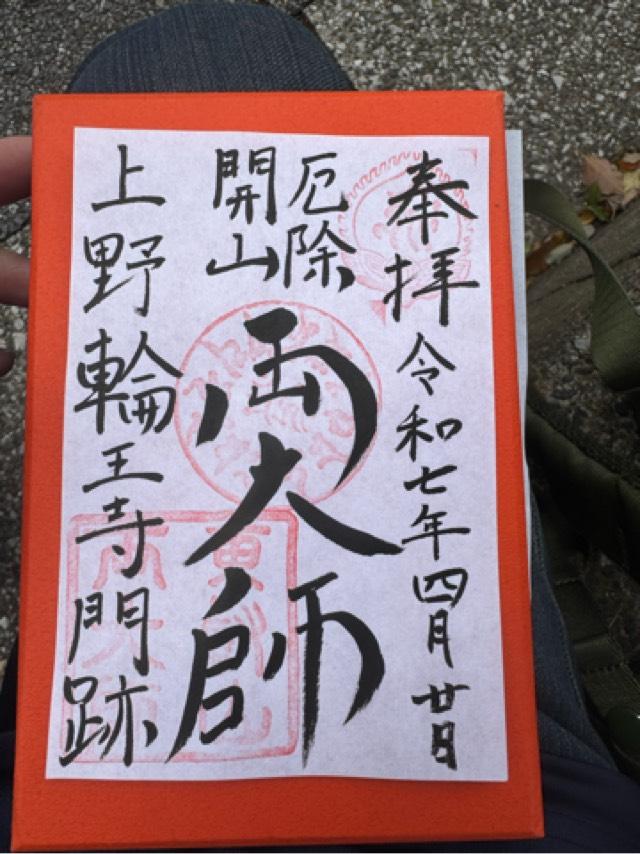 奉拝 令和七年四月廿日
厄除
開山
両大師
上野輪王寺門跡